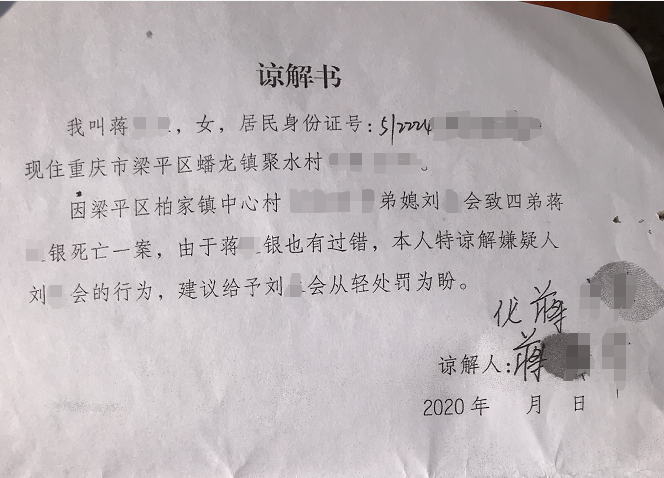 谅解书
我叫蒋，女，居民身份证号：512224
现住重庆市梁平区蟠龙镇聚水村。
因梁平区柏家镇中心村弟媳刘会致四弟蒋
银死亡一案，由于蒋银也有过错，本人特谅解嫌疑人
刘会的行为，建议给予刘会从轻处罚为盼。
代蒋
谅解人：蒋
2020年 月 日